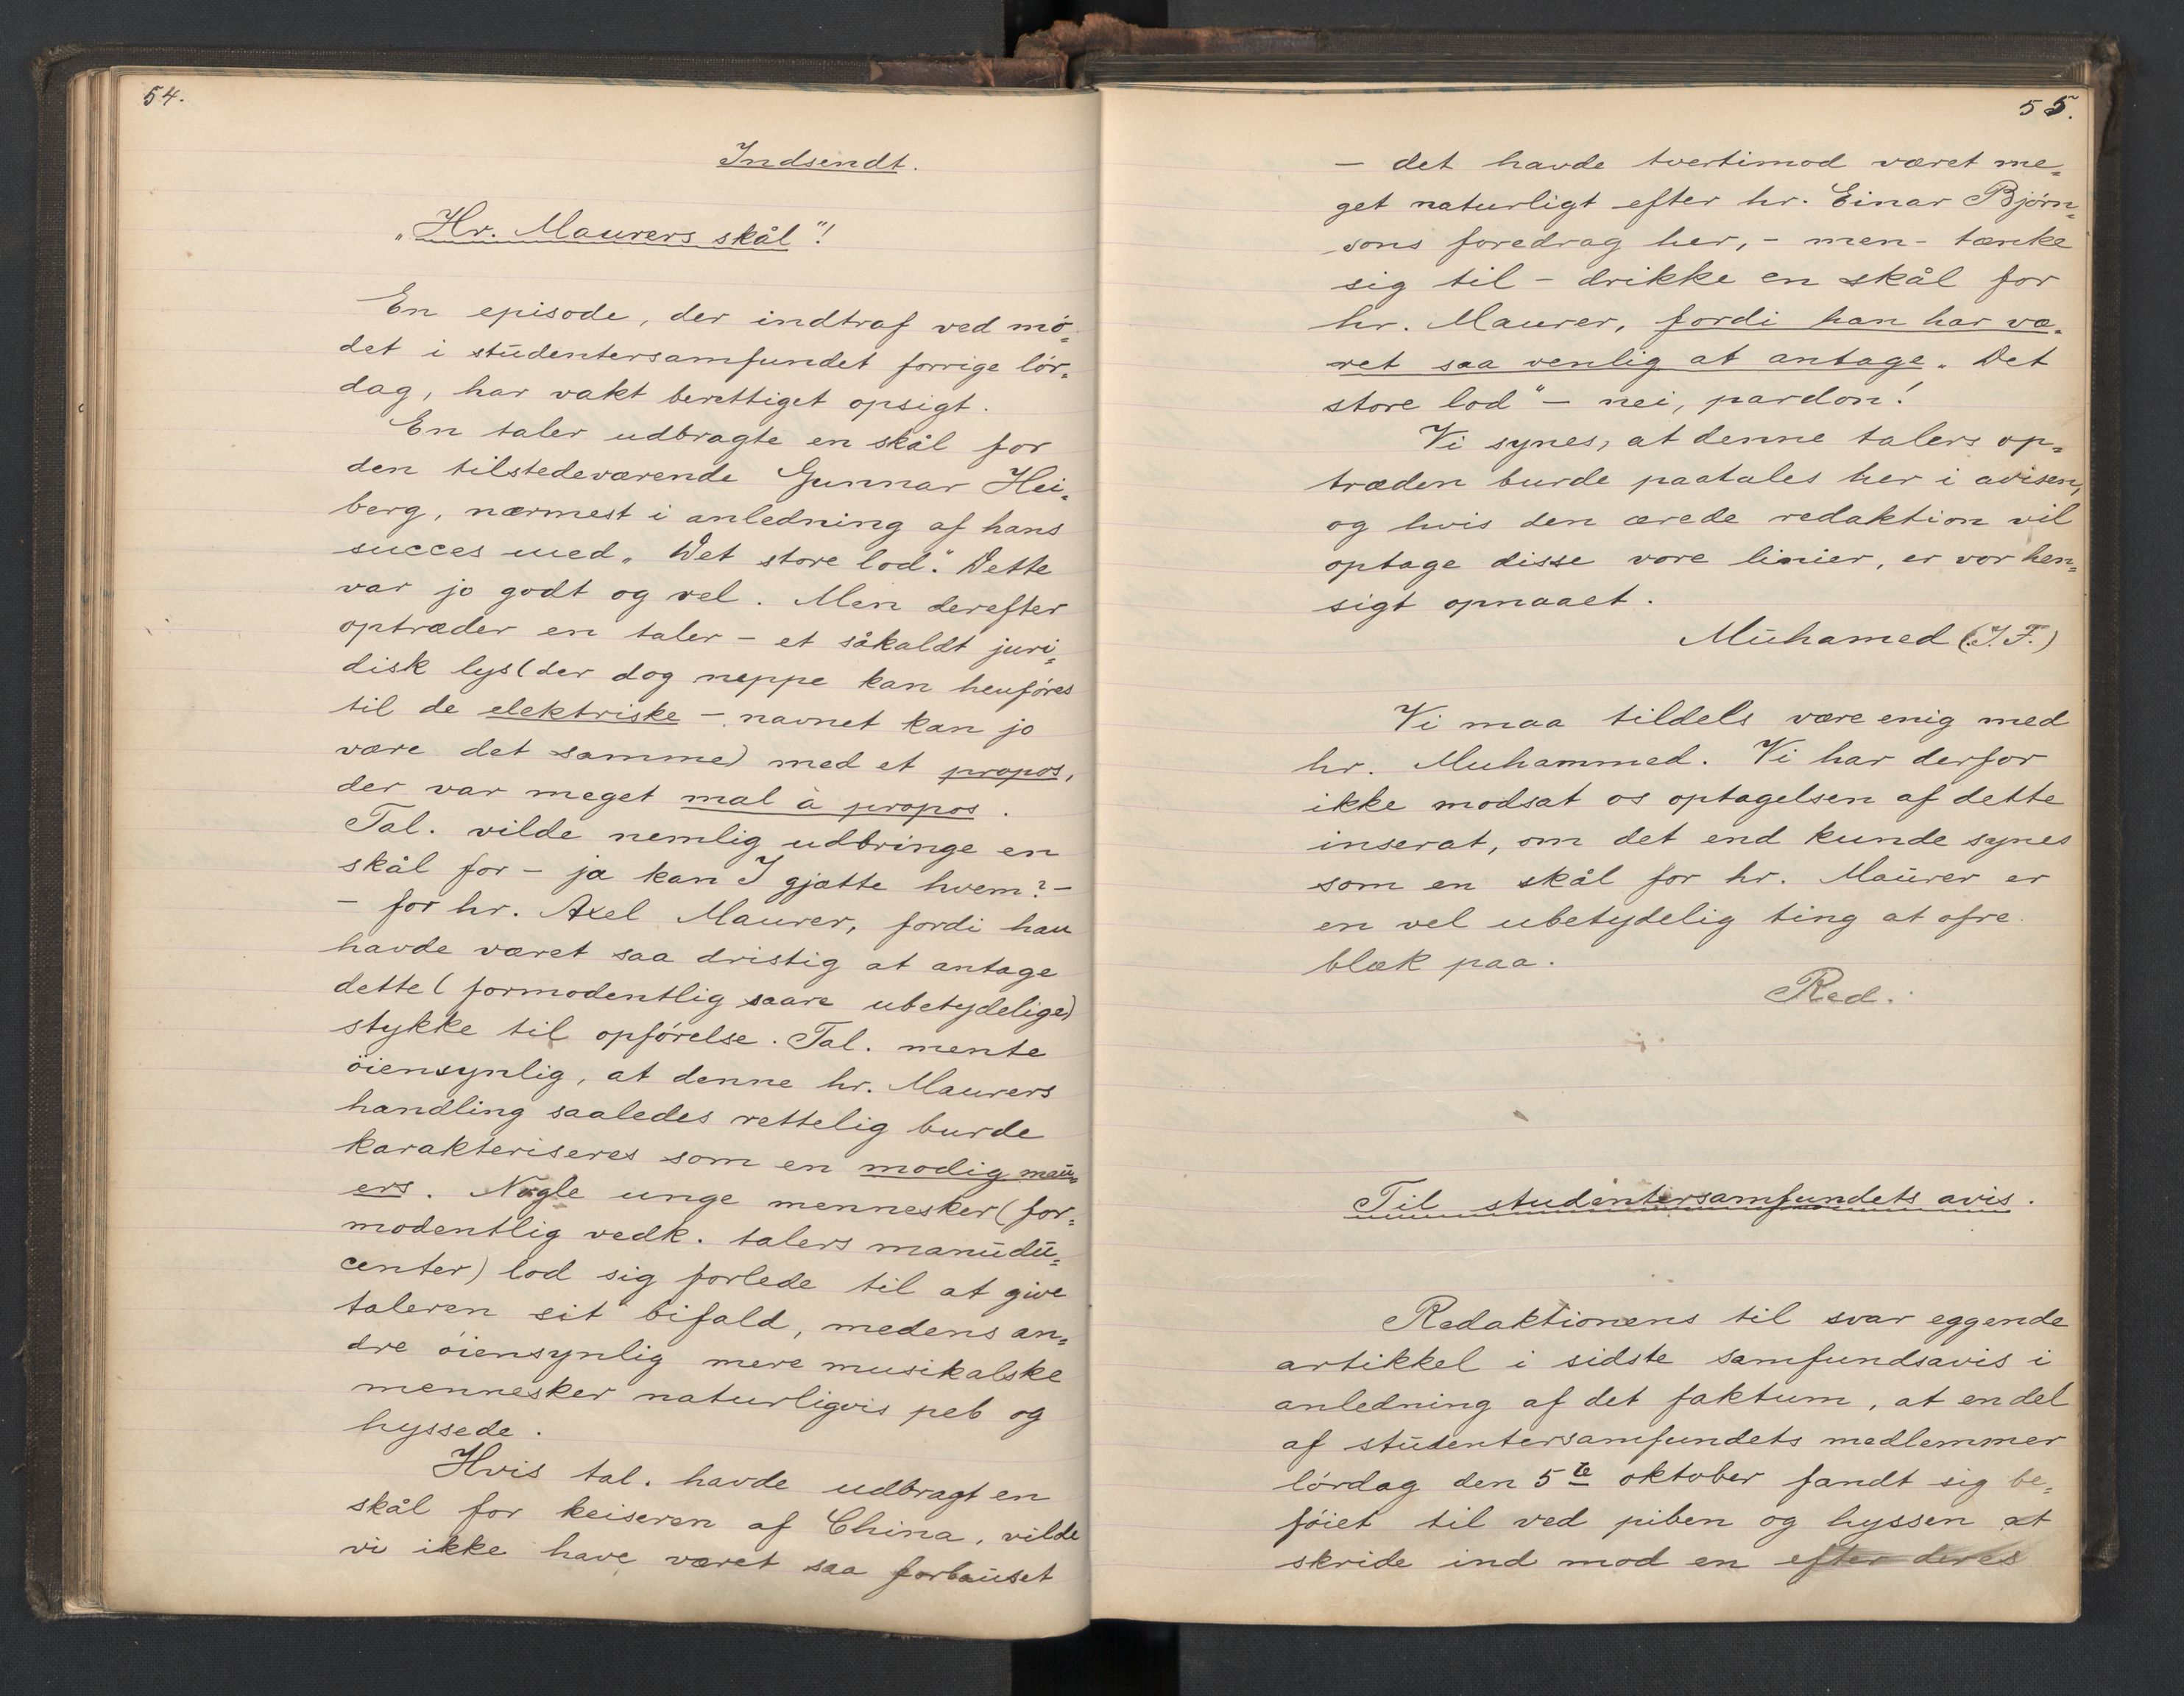 54.
Indsendt.
„Hr. Maurers skål"!
En episode, der indtraf ved mö=
det i studentersamfundet forrige lör=
dag, har vakt berettiget opsigt.
En taler udbragte en skål for
den tilstedeværende Gunnar Hei=
berg, nærmest i anledning af hans
succes med „Det store lod". Dette
var jo godt og vel. Men derefter
optræder en taler - et såkaldt juri=
disk lys (der dog neppe kan henföres
til de elektriske - navnet kan jo
være det samme) med et propos,
der var meget mal à propos.
Tal. vilde nemlig udbringe en
skål for - ja kan I gjætte hvem? -
- for hr. Axel Maurer, fordi han
havde været saa dristig at antage
dette (formodentlig saare ubetydelige)
stykke til opförelse. Tal. mente
öiensynlig, at denne hr. Maurers
handling saaledes rettelig burde
karakteriseres som en modig mau=
ers. Nogle unge mennesker (for=
modentlig vedk. talers manudu=
center) lod sig forlede til at give
taleren sit bifald, medens an=
dre öiensynlig mere musikalske
mennesker naturligvis peb og
hyssede.
Hvis tal. havde udbragt en
skål for keiseren af China, vilde
vi ikke have været saa forbauset
55.
- det havde tvertimod været me=
get naturligt efter hr. Einar Björn=
sons foredrag her, - men - tænke
sig til - drikke en skål for
hr. Maurer, fordi han har væ=
ret saa venlig at antage „Det
store lod" - nei, pardon!
Vi synes, at denne talers op=
træden burde paatales her i avisen,
og hvis den ærede redaktion vil
optage disse vore linier, er vor hen=
sigt opnaaet.
Muhamed (I.F.)
Vi maa tildels være enig med
hr. Muhammed. Vi har derfor
ikke modsat os optagelsen af dette
inserat, om det end kunde synes
som en skål for hr. Maurer er
en vel ubetydelig ting at ofre
blæk paa.
Red.
Til studentersamfundets avis.
Redaktionens til svar eggende
artikkel i sidste samfundsavis i
anledning af det faktum, at en del
af studentersamfundets medlemmer
lördag den 5te oktober fandt sig be=
föiet til ved piben og hyssen at
skride ind mod en efter deres